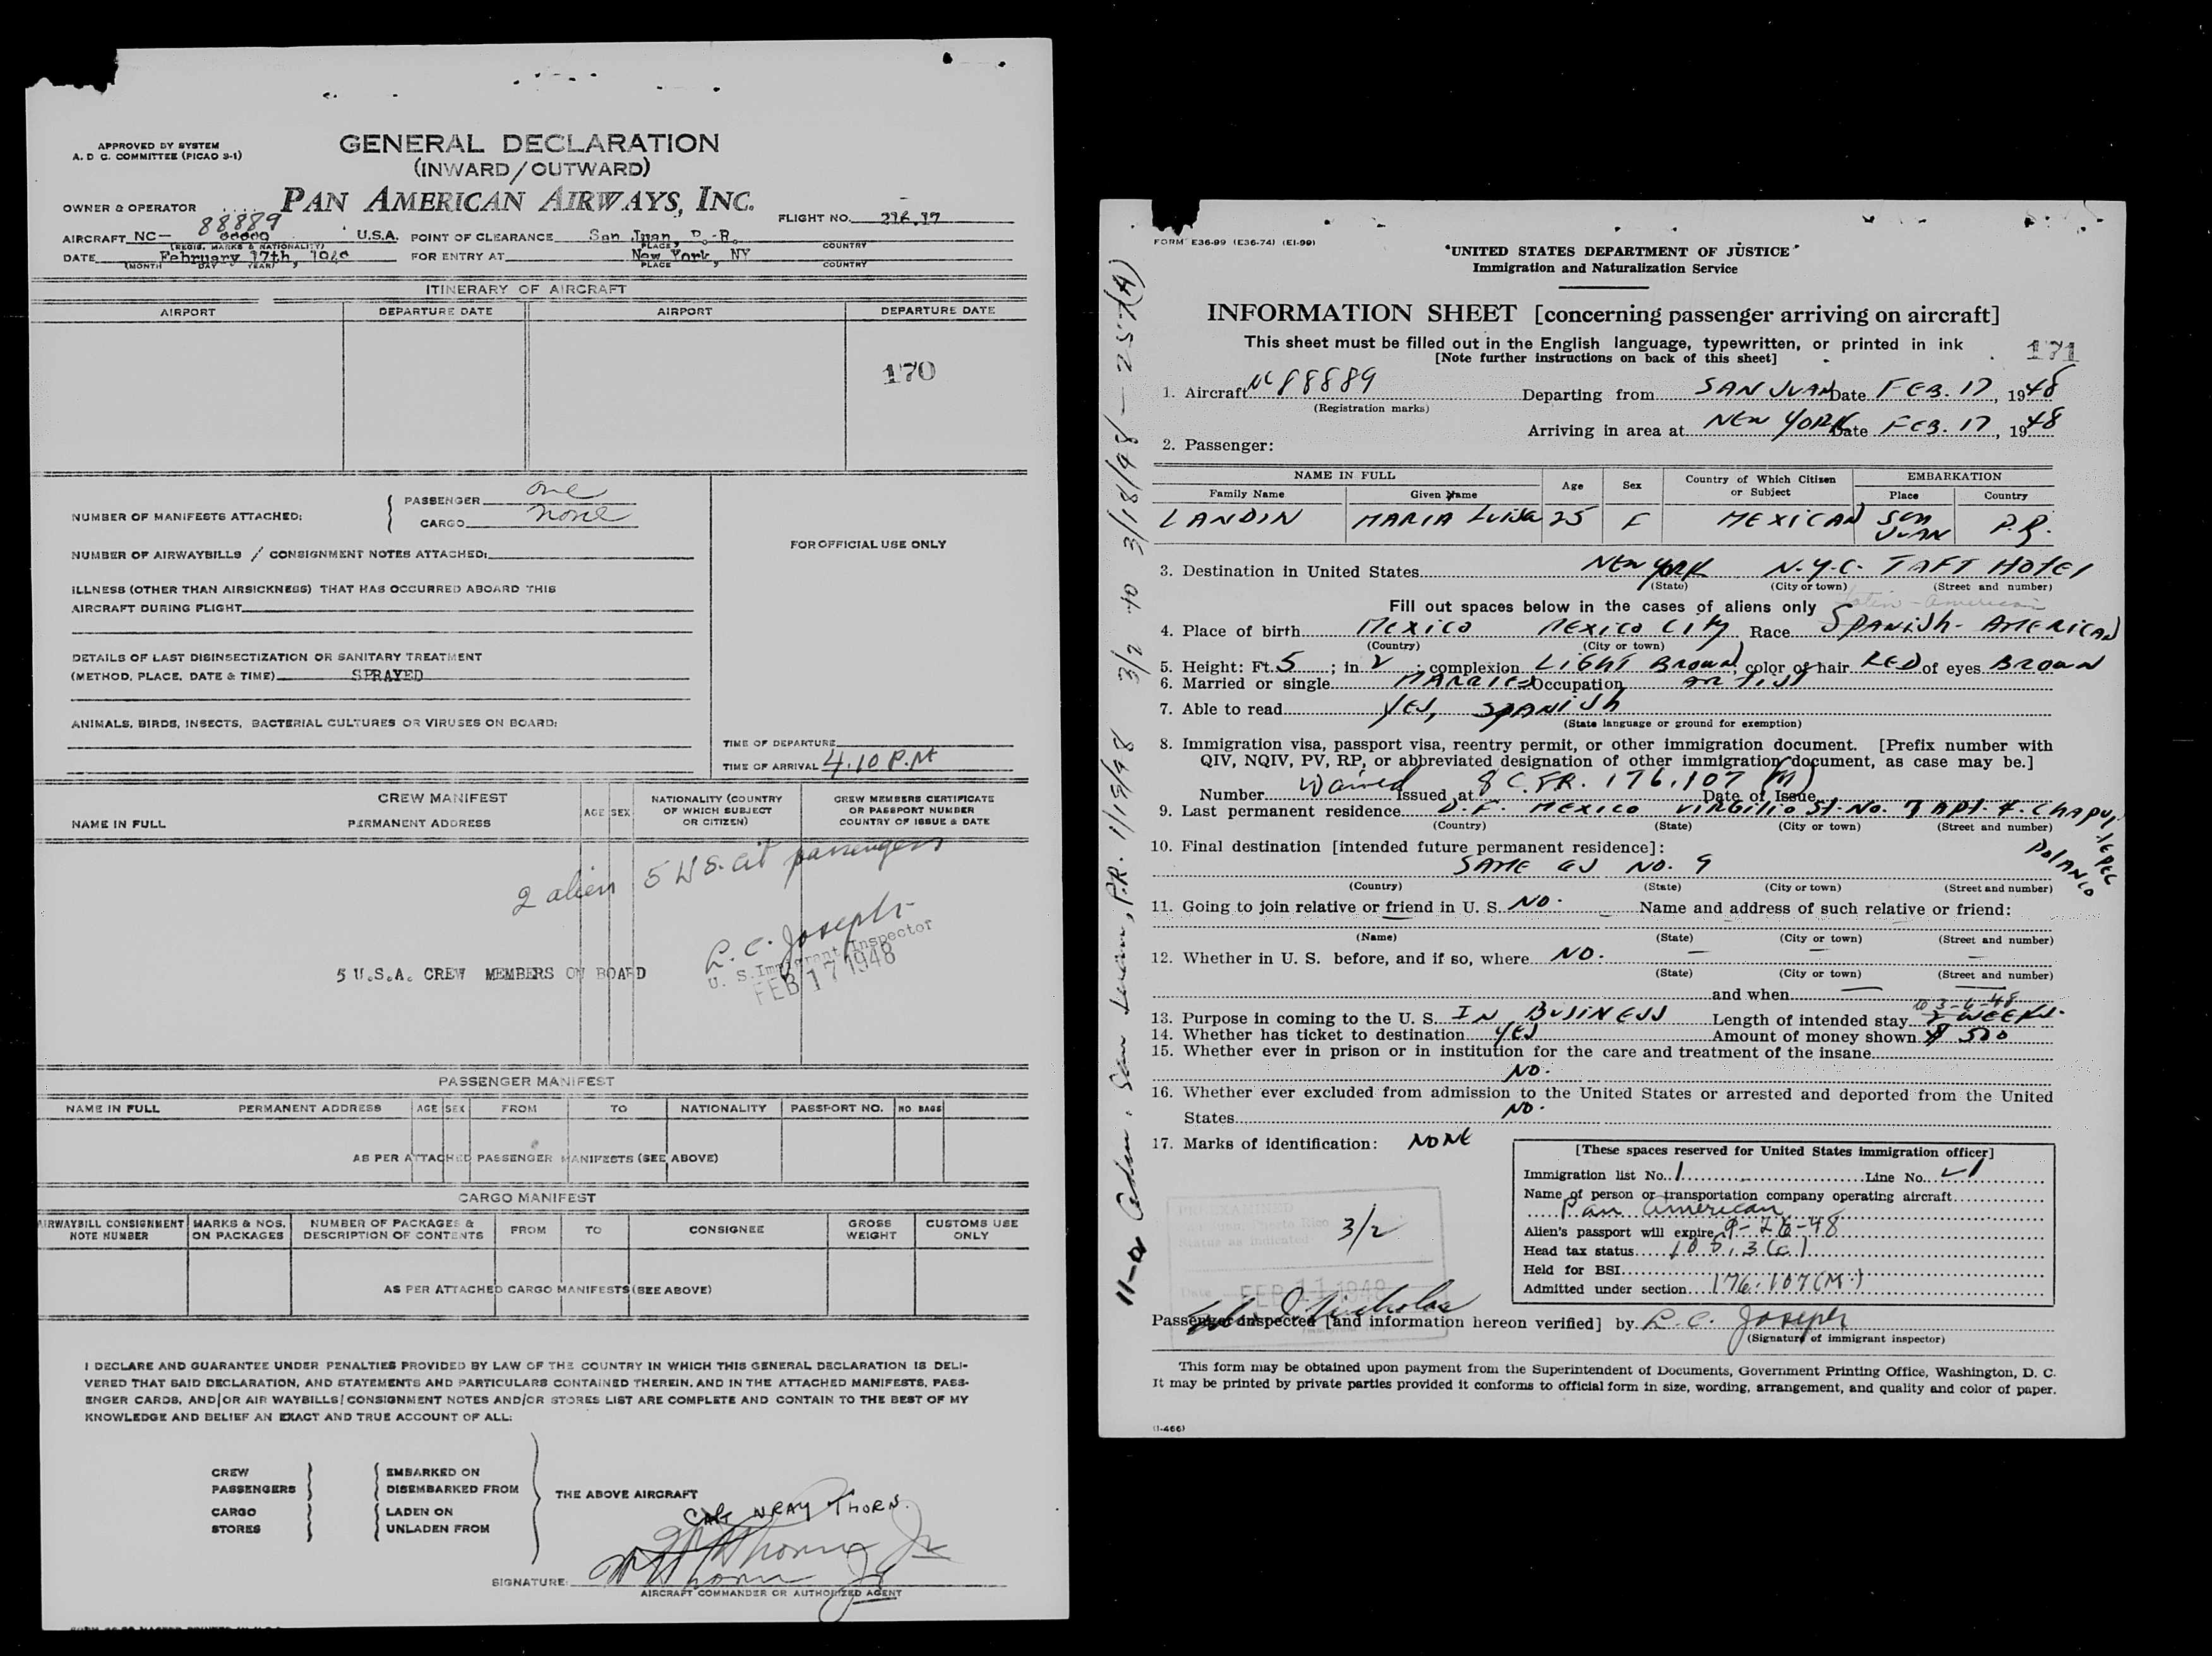 APPROVED BY SYSTEM
A. D. C. COMMITTEE (PICAO 9-1)
GENERAL DECLARATION
(INWARD/OUTWARD)
OWNER & OPERATOR
PAN AMERICAN AIRWAYS, INC.
FLIGHT NO.
88889
AIRCRAFT NC— U.S.A. POINT OF CLEARANCE San Juan, P.R.
(REGIS. MARKS & NATIONALITY) PLACE, COUNTRY
DATE February 17th, FOR ENTRY AT New York, NY
(MONTH DAY YEAR) PLACE COUNTRY
ITINERARY OF AIRCRAFT
AIRPORT DEPARTURE DATE AIRPORT DEPARTURE DATE
170
NUMBER OF MANIFESTS ATTACHED: PASSENGER one
CARGO none
NUMBER OF AIRWAYBILLS / CONSIGNMENT NOTES ATTACHED:
FOR OFFICIAL USE ONLY
ILLNESS (OTHER THAN AIRSICKNESS) THAT HAS OCCURRED ABOARD THIS
AIRCRAFT DURING FLIGHT
DETAILS OF LAST DISINSECTIZATION OR SANITARY TREATMENT
(METHOD, PLACE, DATE & TIME) SPRAYED
ANIMALS, BIRDS, INSECTS, BACTERIAL CULTURES OR VIRUSES ON BOARD:
TIME OF DEPARTURE
TIME OF ARRIVAL 4.10 P.M
CREW MANIFEST
NAME IN FULL PERMANENT ADDRESS AGE SEX NATIONALITY (COUNTRY OF WHICH SUBJECT OR CITIZEN) CREW MEMBERS CERTIFICATE OR PASSPORT NUMBER COUNTRY OF ISSUE & DATE
2 alien 5 US. cit passengers
L. C. Joseph
U. S. Immigrant Inspector
FEB 17 1948
5 U.S.A. CREW MEMBERS ON BOARD
PASSENGER MANIFEST
NAME IN FULL PERMANENT ADDRESS AGE SEX FROM TO NATIONALITY PASSPORT NO. NO BAGS
AS PER ATTACHED PASSENGER MANIFESTS (SEE ABOVE)
CARGO MANIFEST
AIRWAYBILL CONSIGNMENT NOTE NUMBER MARKS & NOS. ON PACKAGES NUMBER OF PACKAGES & DESCRIPTION OF CONTENTS FROM TO CONSIGNEE GROSS WEIGHT CUSTOMS USE ONLY
AS PER ATTACHED CARGO MANIFESTS (SEE ABOVE)
I DECLARE AND GUARANTEE UNDER PENALTIES PROVIDED BY LAW OF THE COUNTRY IN WHICH THIS GENERAL DECLARATION IS DELI-
VERED THAT SAID DECLARATION, AND STATEMENTS AND PARTICULARS CONTAINED THEREIN, AND IN THE ATTACHED MANIFESTS, PASS-
ENGER CARDS, AND/OR AIR WAYBILLS/CONSIGNMENT NOTES AND/OR STORES LIST ARE COMPLETE AND CONTAIN TO THE BEST OF MY
KNOWLEDGE AND BELIEF AN EXACT AND TRUE ACCOUNT OF ALL:
CREW EMBARKED ON
PASSENGERS DISEMBARKED FROM
THE ABOVE AIRCRAFT
CARGO LADEN ON
STORES UNLADEN FROM
CAPT WRAY THORN.
SIGNATURE:
AIRCRAFT COMMANDER OR AUTHORIZED AGENT
FORM E36-99 (E36-74) (E1-99)
UNITED STATES DEPARTMENT OF JUSTICE
Immigration and Naturalization Service
INFORMATION SHEET [concerning passenger arriving on aircraft]
This sheet must be filled out in the English language, typewritten, or printed in ink
[Note further instructions on back of this sheet]
171
1. Aircraft NC 88889 Departing from SAN JUAN Date FEB. 17, 1948
(Registration marks)
Arriving in area at NEW YORK Date FEB. 17, 1948
2. Passenger:
NAME IN FULL Age Sex Country of Which Citizen or Subject EMBARKATION
Family Name Given Name Place Country
LANDIN MARIA LUISA 25 F MEXICAN SAN JUAN P.R.
3. Destination in United States NEW YORK N.Y.C. TAFT HOTEL
(State) (City or town) (Street and number)
Fill out spaces below in the cases of aliens only Latin-American
4. Place of birth MEXICO MEXICO CITY Race SPANISH-AMERICAN
(Country) (City or town)
5. Height: Ft. 5; in 2; complexion LIGHT BROWN, color of hair RED of eyes BROWN
6. Married or single MARRIED Occupation ARTIST
7. Able to read YES, SPANISH
(State language or ground for exemption)
8. Immigration visa, passport visa, reentry permit, or other immigration document. [Prefix number with
QIV, NQIV, PV, RP, or abbreviated designation of other immigration document, as case may be.]
Number Waived Issued at 8 C.F.R. 176.107 (M) Date of Issue
9. Last permanent residence D.F. MEXICO VIRGILIO ST. NO. 7 APT. 4. CHAPULTEPEC POLANCO
(Country) (State) (City or town) (Street and number)
10. Final destination [intended future permanent residence]:
SAME AS NO. 9
(Country) (State) (City or town) (Street and number)
11. Going to join relative or friend in U. S. NO. Name and address of such relative or friend:
(Name) (State) (City or town) (Street and number)
12. Whether in U. S. before, and if so, where NO. —
(State) (City or town) (Street and number)
and when —
to 3-6-48
13. Purpose in coming to the U. S. IN BUSINESS Length of intended stay 2 WEEKS.
14. Whether has ticket to destination YES Amount of money shown $ 500
15. Whether ever in prison or in institution for the care and treatment of the insane
NO.
16. Whether ever excluded from admission to the United States or arrested and deported from the United
States NO.
17. Marks of identification: NONE
[These spaces reserved for United States immigration officer]
Immigration list No. 1 Line No. 1
Name of person or transportation company operating aircraft
Pan American
Alien's passport will expire 9-26-48
Head tax status 105.3(c)
Held for BSI
Admitted under section 176.107(M)
PRE-EXAMINED
San Juan, Puerto Rico
Status as indicated
3/2
Date FEB 11 1948
Passenger inspected [and information hereon verified] by L. C. Joseph
(Signature of immigrant inspector)
This form may be obtained upon payment from the Superintendent of Documents, Government Printing Office, Washington, D. C.
It may be printed by private parties provided it conforms to official form in size, wording, arrangement, and quality and color of paper.
(I-466)